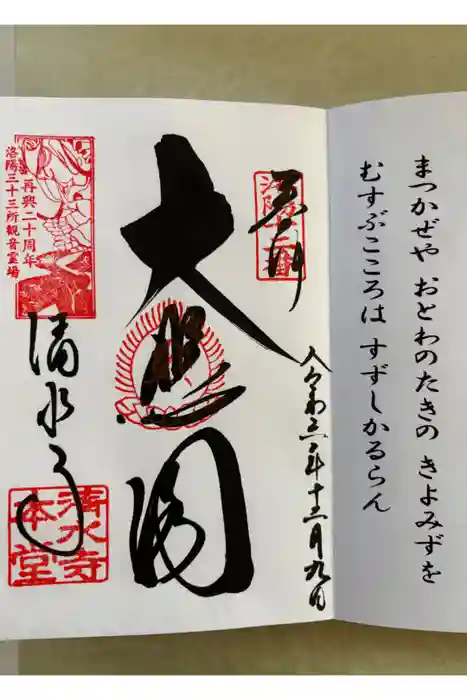 まつかぜや おとわのたきの きよみずを
むすぶこころは すずしかるらん
奉拝
洛陽十二番
令和三年十二月九日
大悲閣
再興二十周年
洛陽三十三所観音霊場
清水寺
清水寺
本堂